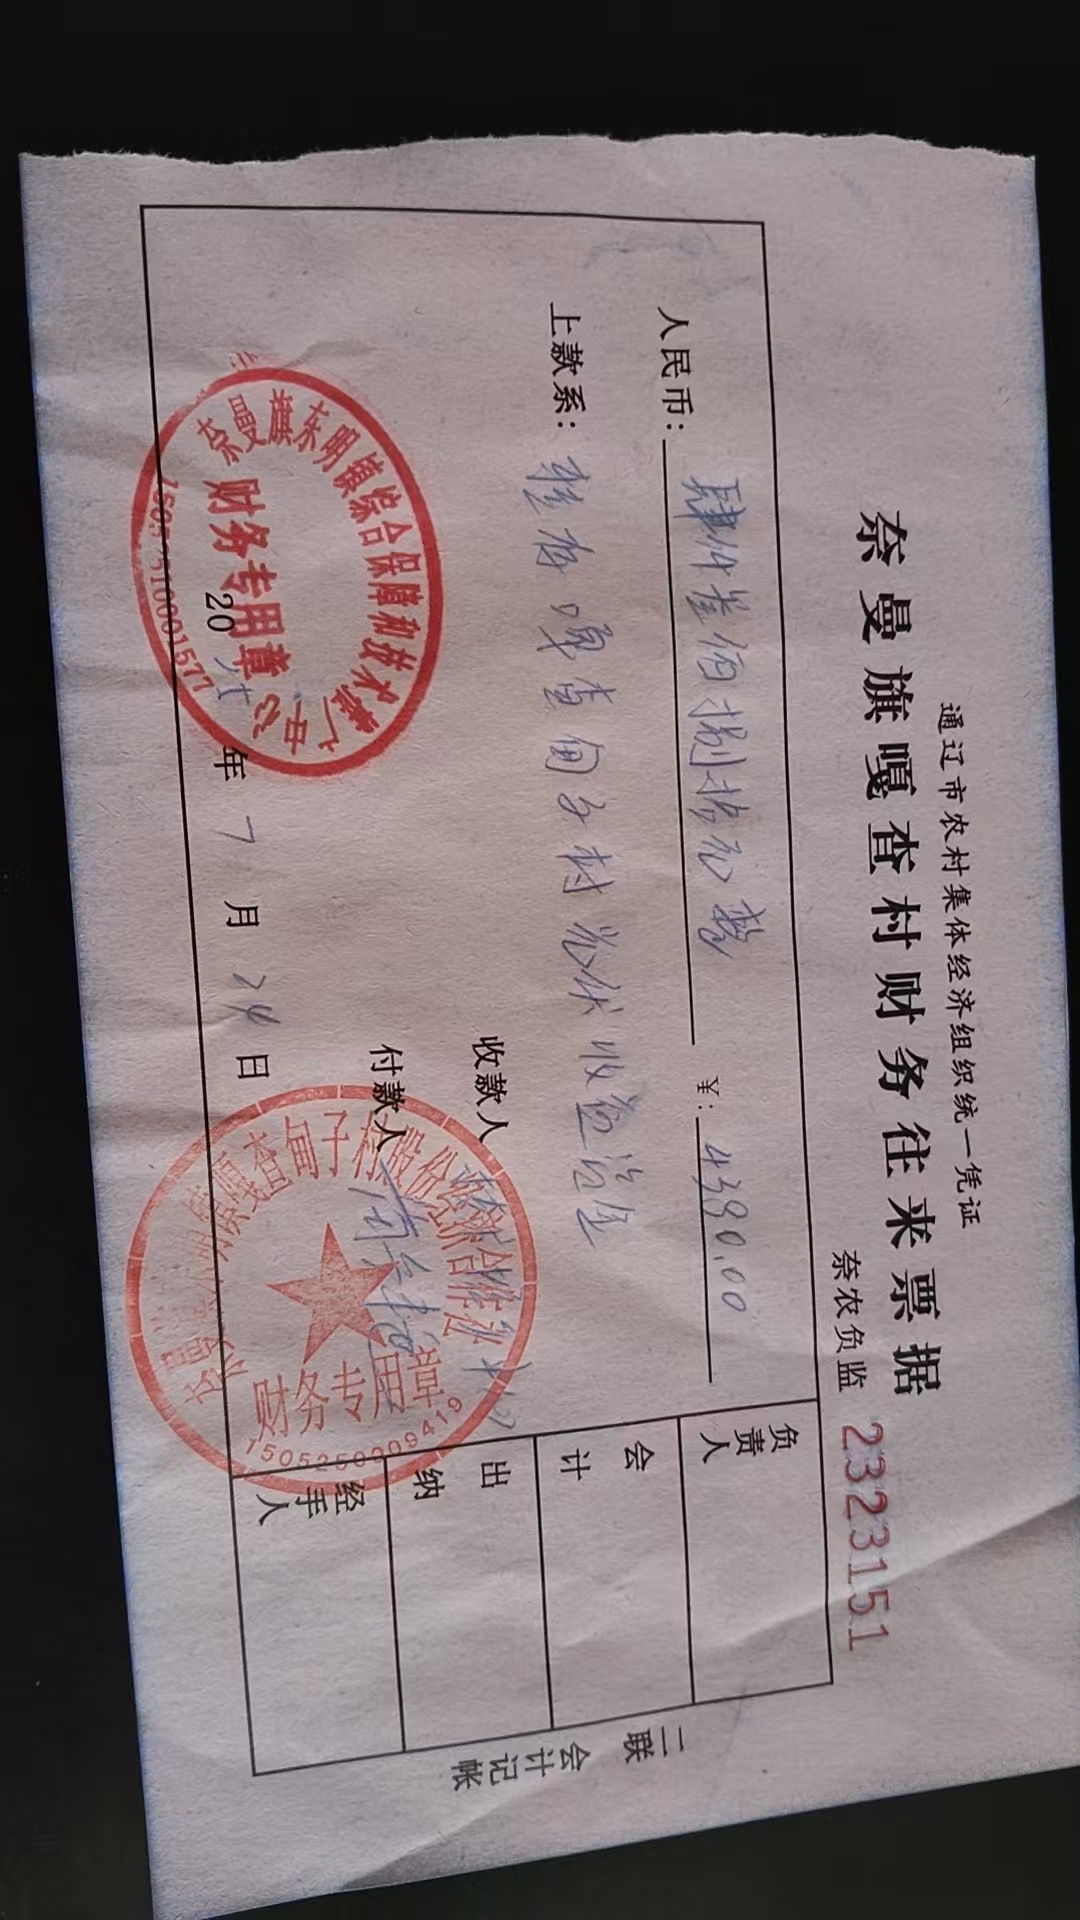 通辽市农村集体经济组织统一凭证
奈曼旗嘎查村财务往来票据
奈农负监 2323151
人民币: 肆仟 佰捌拾元整 ¥:
上款系: 嘎查甸子村光伏收益资金
收款人
付款人
20 年7月24日
负责人
会计
出纳
经手人
二联 会计记帐
奈曼旗东明镇综合保障和技术推广中心
财务专用章
1505251000157
嘎查甸子村股份经济合作社
财务专用章